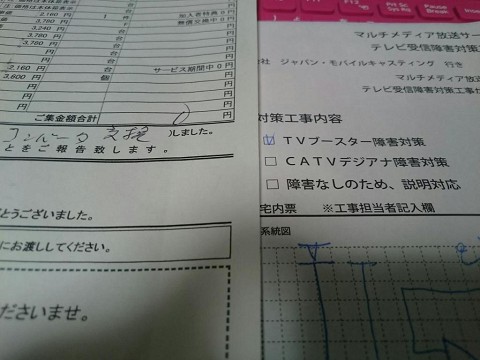 3,780 円 台 加入者特典 0 円
3,240 円 台 無償交換中 0 円
3,780 円 台 円
3,780 円 台 円
円 台 円
2,160 円 台 サービス期間中 0 円
3,600 円 個 円
円 円
円 円
ご集金額合計 円
しました。
とをご報告致します。
とうございました。
にお渡ししてください。
ださいませ。
F12
Prt Sc
Sys Rq
Pause
Break
マルチメディア放送サー
テレビ受信障害対策
会社 ジャパン・モバイルキャスティング 行き
マルチメディア
テレビ受信障害対策工事
対策工事内容
☑ TVブースター障害対策
□ CATVデジアナ障害対策
□ 障害なしのため、説明対応
宅内票 ※工事担当者記入欄
系統図